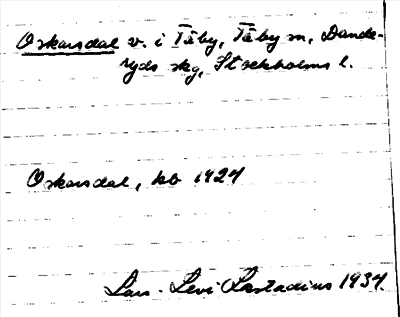 Oskarsdal v. i Täby, Täby sn, Dande-
ryds skg, Stockholms l.
Oskarsdal, kb 1924
Lars-Levi Læstadius 1934.